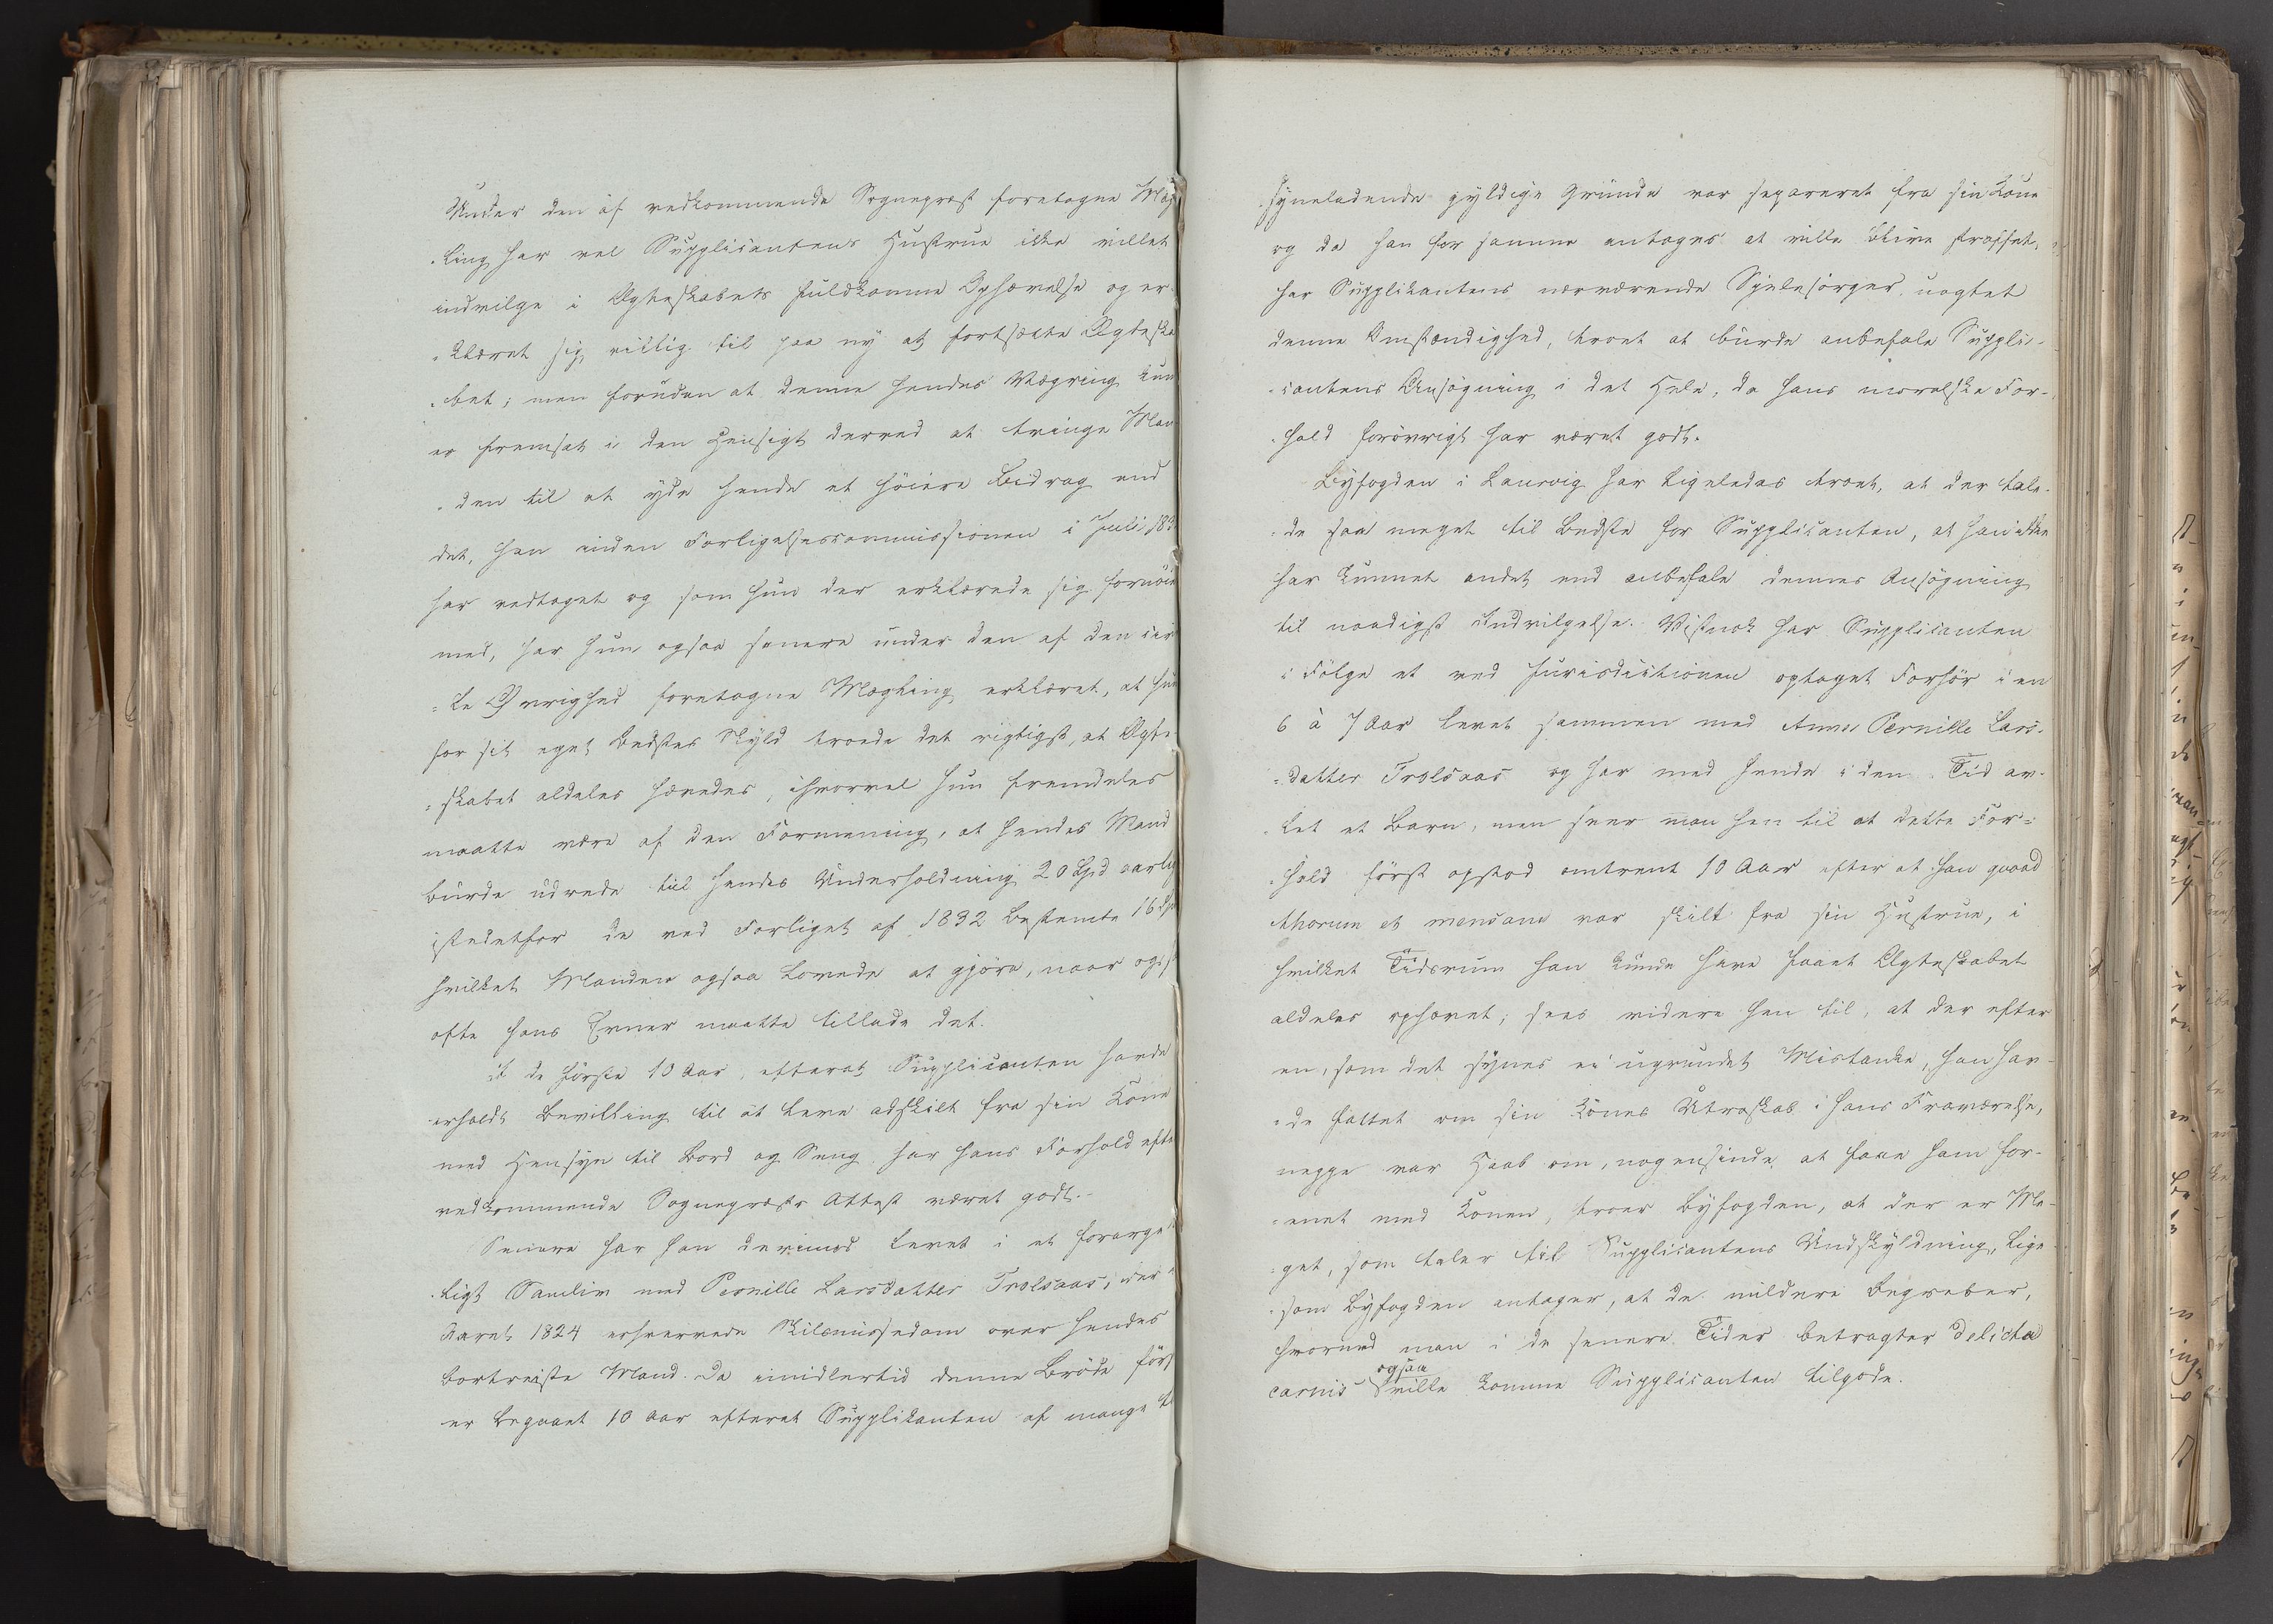 Under den af vedkommende Sognepræst foretagne Mæg
-ling har vel Supplicantens Hustrue ikke villet
indvilge i Ægteskabets fuldkomne Ophævelse og er-
-klæret sig villig til paa ny at fortsætte Ægteska
-bet; men foruden at denne hendes Vægring kun
er fremsat i den Hensigt derved at tvinge Man-
-den til at yde hende et höiere Bidrag end
det, han inden Forligelsescommissionen i Juli 183
har vedtaget og som hun der erklærede sig fornöie
med, har hun ogsaa senere under den af den civi
-le Øvrighed foretagne Mægling erklæret, at hun
for sit eget Bedstes Skyld troede det rigtigst, at Ægte-
-skabet aldeles hævedes, ihvorvel hun fremdeles
maatte være af den Formening, at hendes Mand
burde udrede til hendes Underholdning 20 Spd aarlig
istedetfor de ved Forliget af 1832 bestemte 16 Spd
hvilket Manden ogsaa lovede at gjöre, naar og saa
ofte hans Evner maatte tillade det.
I de förste 10 Aar, efterat Supplicanten havde
erholdt Bevilling til at leve adskilt fra sin Kone
med Hensyn til Bord og Seng har hans Forhold efter
vedkommende Sognepræsts Attest været godt.-
Senere har han derimod levet i et forarge-
-ligt Samliv med Pernille Larsdatter Trolsaas, der i
Aaret 1824 erhvervede Skilsmissedom over hendes
bortreiste Mand. Da imidlertid denne Bröde först
er begaaet 10 Aar efterat Supplikanten af mange til
syneladende gyldige Grunde var separeret fra sin Kone
og da han for samme antages at ville blive straffet,
har Supplikantens nærværende Sjælesörger uagtet
denne Omstændighed, troet at burde anbefale Suppli-
-cantens Ansögning i det Hele, da hans moralske For-
-hold forövrigt har været godt.
Byfogden i Laurvig har ligeledes troet, at der tale-
-de saa meget til Bedste for Supplicanten, at han ikke
har kunnet andet end anbefale dennes Ansögning
til naadigst Indvilgelse. Vistnok har Supplicanten
i Fölge et ved Jurisdictionen optaget Forhör i en
6 à 7 Aar levet sammen med Anne Pernille Lars-
-datter Trolsaas og har med hende i den Tid av-
-let et Barn, men seer man hen til at dette For-
-hold först opstod omtrent 10 Aar efter at han qvoad
thorum et mensam var skilt fra sin Hustrue, i
hvilket Tidsrum han kunde have faaet Ægteskabet
aldeles ophævet; sees videre hen til, at der efter
en, som det synes ei ugrundet Mistanke, han hav-
-de fattet om sin Kones Utroskab i hans Fraværelse,
neppe var Haab om, nogensinde at faae ham for-
-enet med Konen, troer Byfogden, at der er Me-
-get, som taler til Supplicantens Undskyldning, lige-
-som Byfogden antager, at de mildere Begreber,
hvormed man i de senere Tider betragter delicta
carnis ogsaa ville komme Supplicanten tilgode.